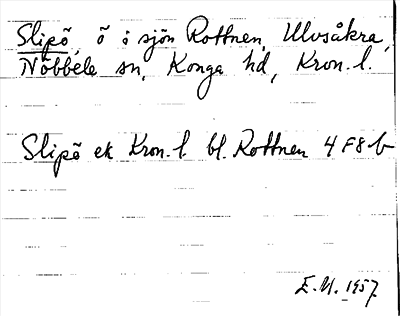 Slipö, ö i sjön Rottnen, Ulvsåkra,
Nöbbele sn, Konga hd, Kron. l.
Slipö ek Kron. l. bl. Rottnen 4 F8 b
E.M. 1957